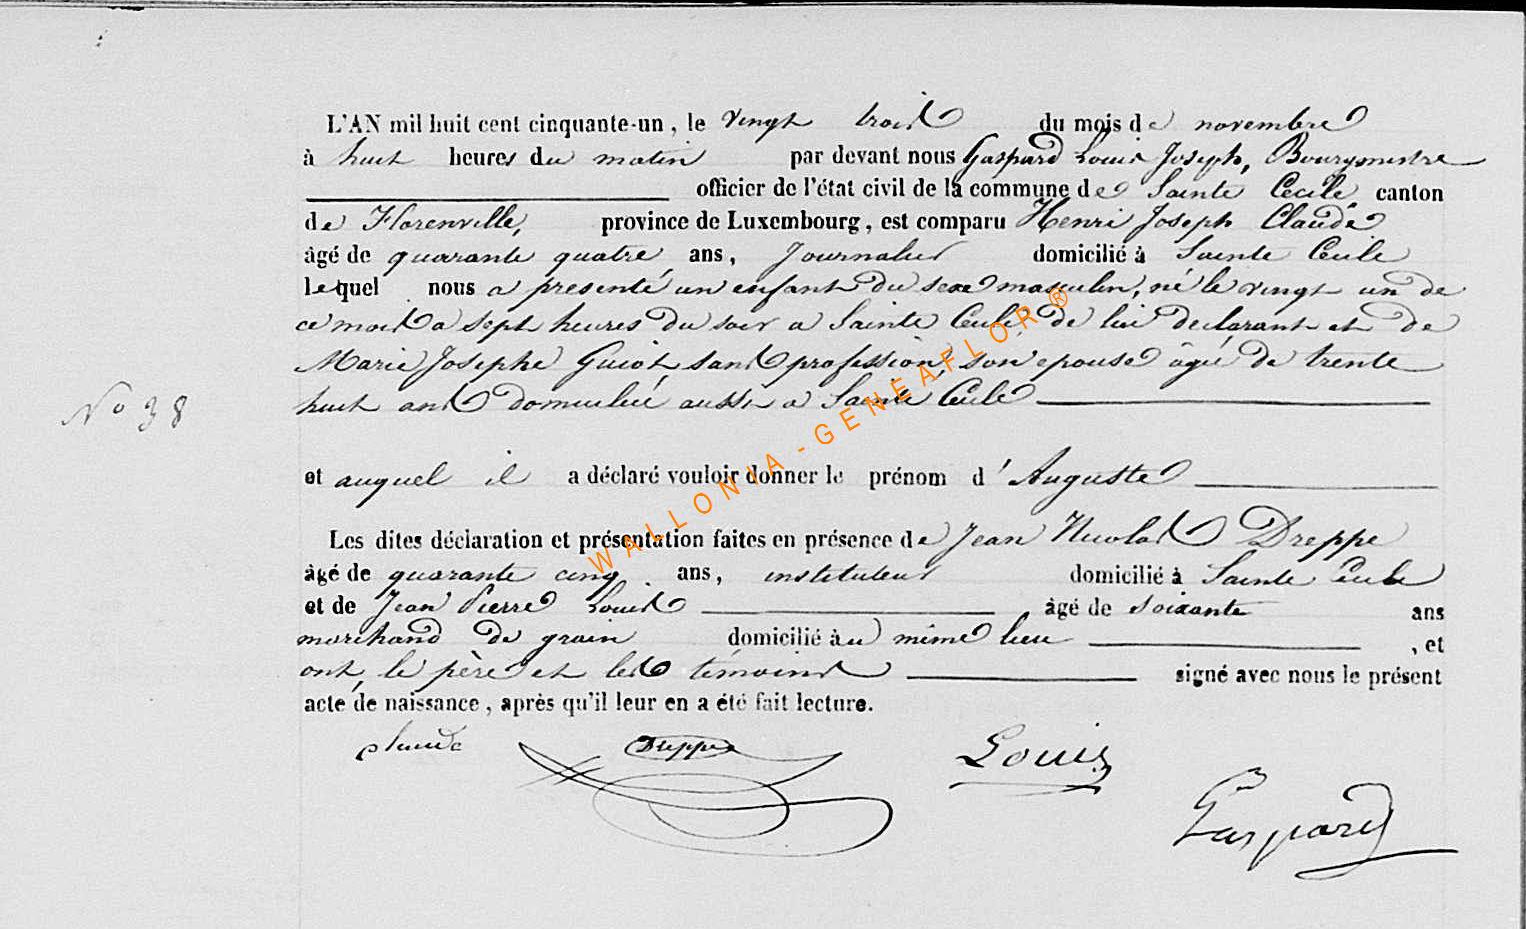 L'AN mil huit cent cinquante-un, le vingt trois du mois de novembre
à huit heures du matin par devant nous Gaspard Louis Joseph, Bourgmestre
officier de l'état civil de la commune de Sainte Cecile canton
de Florenville, province de Luxembourg, est comparu Henri Joseph Claude
âgé de quarante quatre ans, Journalier domicilié à Sainte Cecile
lequel nous a presenté un enfant du sexe masculin, né le vingt un de
ce mois a sept heures du soir a Sainte Cecile de lui declarant et de
Marie Josephe Guiot sans profession son epouse âgée de trente
huit ans domiciliée aussi a Sainte Cecile
No 38
et auquel il a déclaré vouloir donner le prénom d'Auguste
Les dites déclaration et présentation faites en présence de Jean Nicolas Dreppe
âgé de quarante cinq ans, instituteur domicilié à Sainte Cecile
et de Jean Pierre Louis âgé de soixante ans
marchand de grain domicilié au même lieu, et
ont le père et les témoins signé avec nous le présent
acte de naissance, après qu'il leur en a été fait lecture.
Claude Dreppe Louis
Gaspard
WALLONIA - GENEAFLOR ®